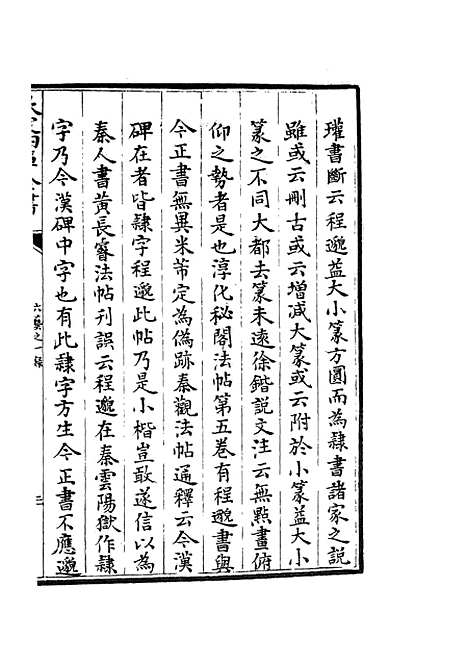 瓘書斷云程邈益大小篆方圓而為隸書諸家之說
雖或云刪古或云增減大篆或云附於小篆益大小
篆之不同大都去篆未遠徐鍇說文注云無點畫俯
仰之勢者是也淳化秘閣法帖第五卷有程邈書與
今正書無異米芾定為偽跡秦觀法帖通釋云今漢
碑在者皆隸字程邈此帖乃是小楷豈敢遂信以為
秦人書黃長睿法帖刊誤云程邈在秦雲陽獄作隸
字乃今漢碑中字也有此隸字方生今正書不應邈
六藝之一錄